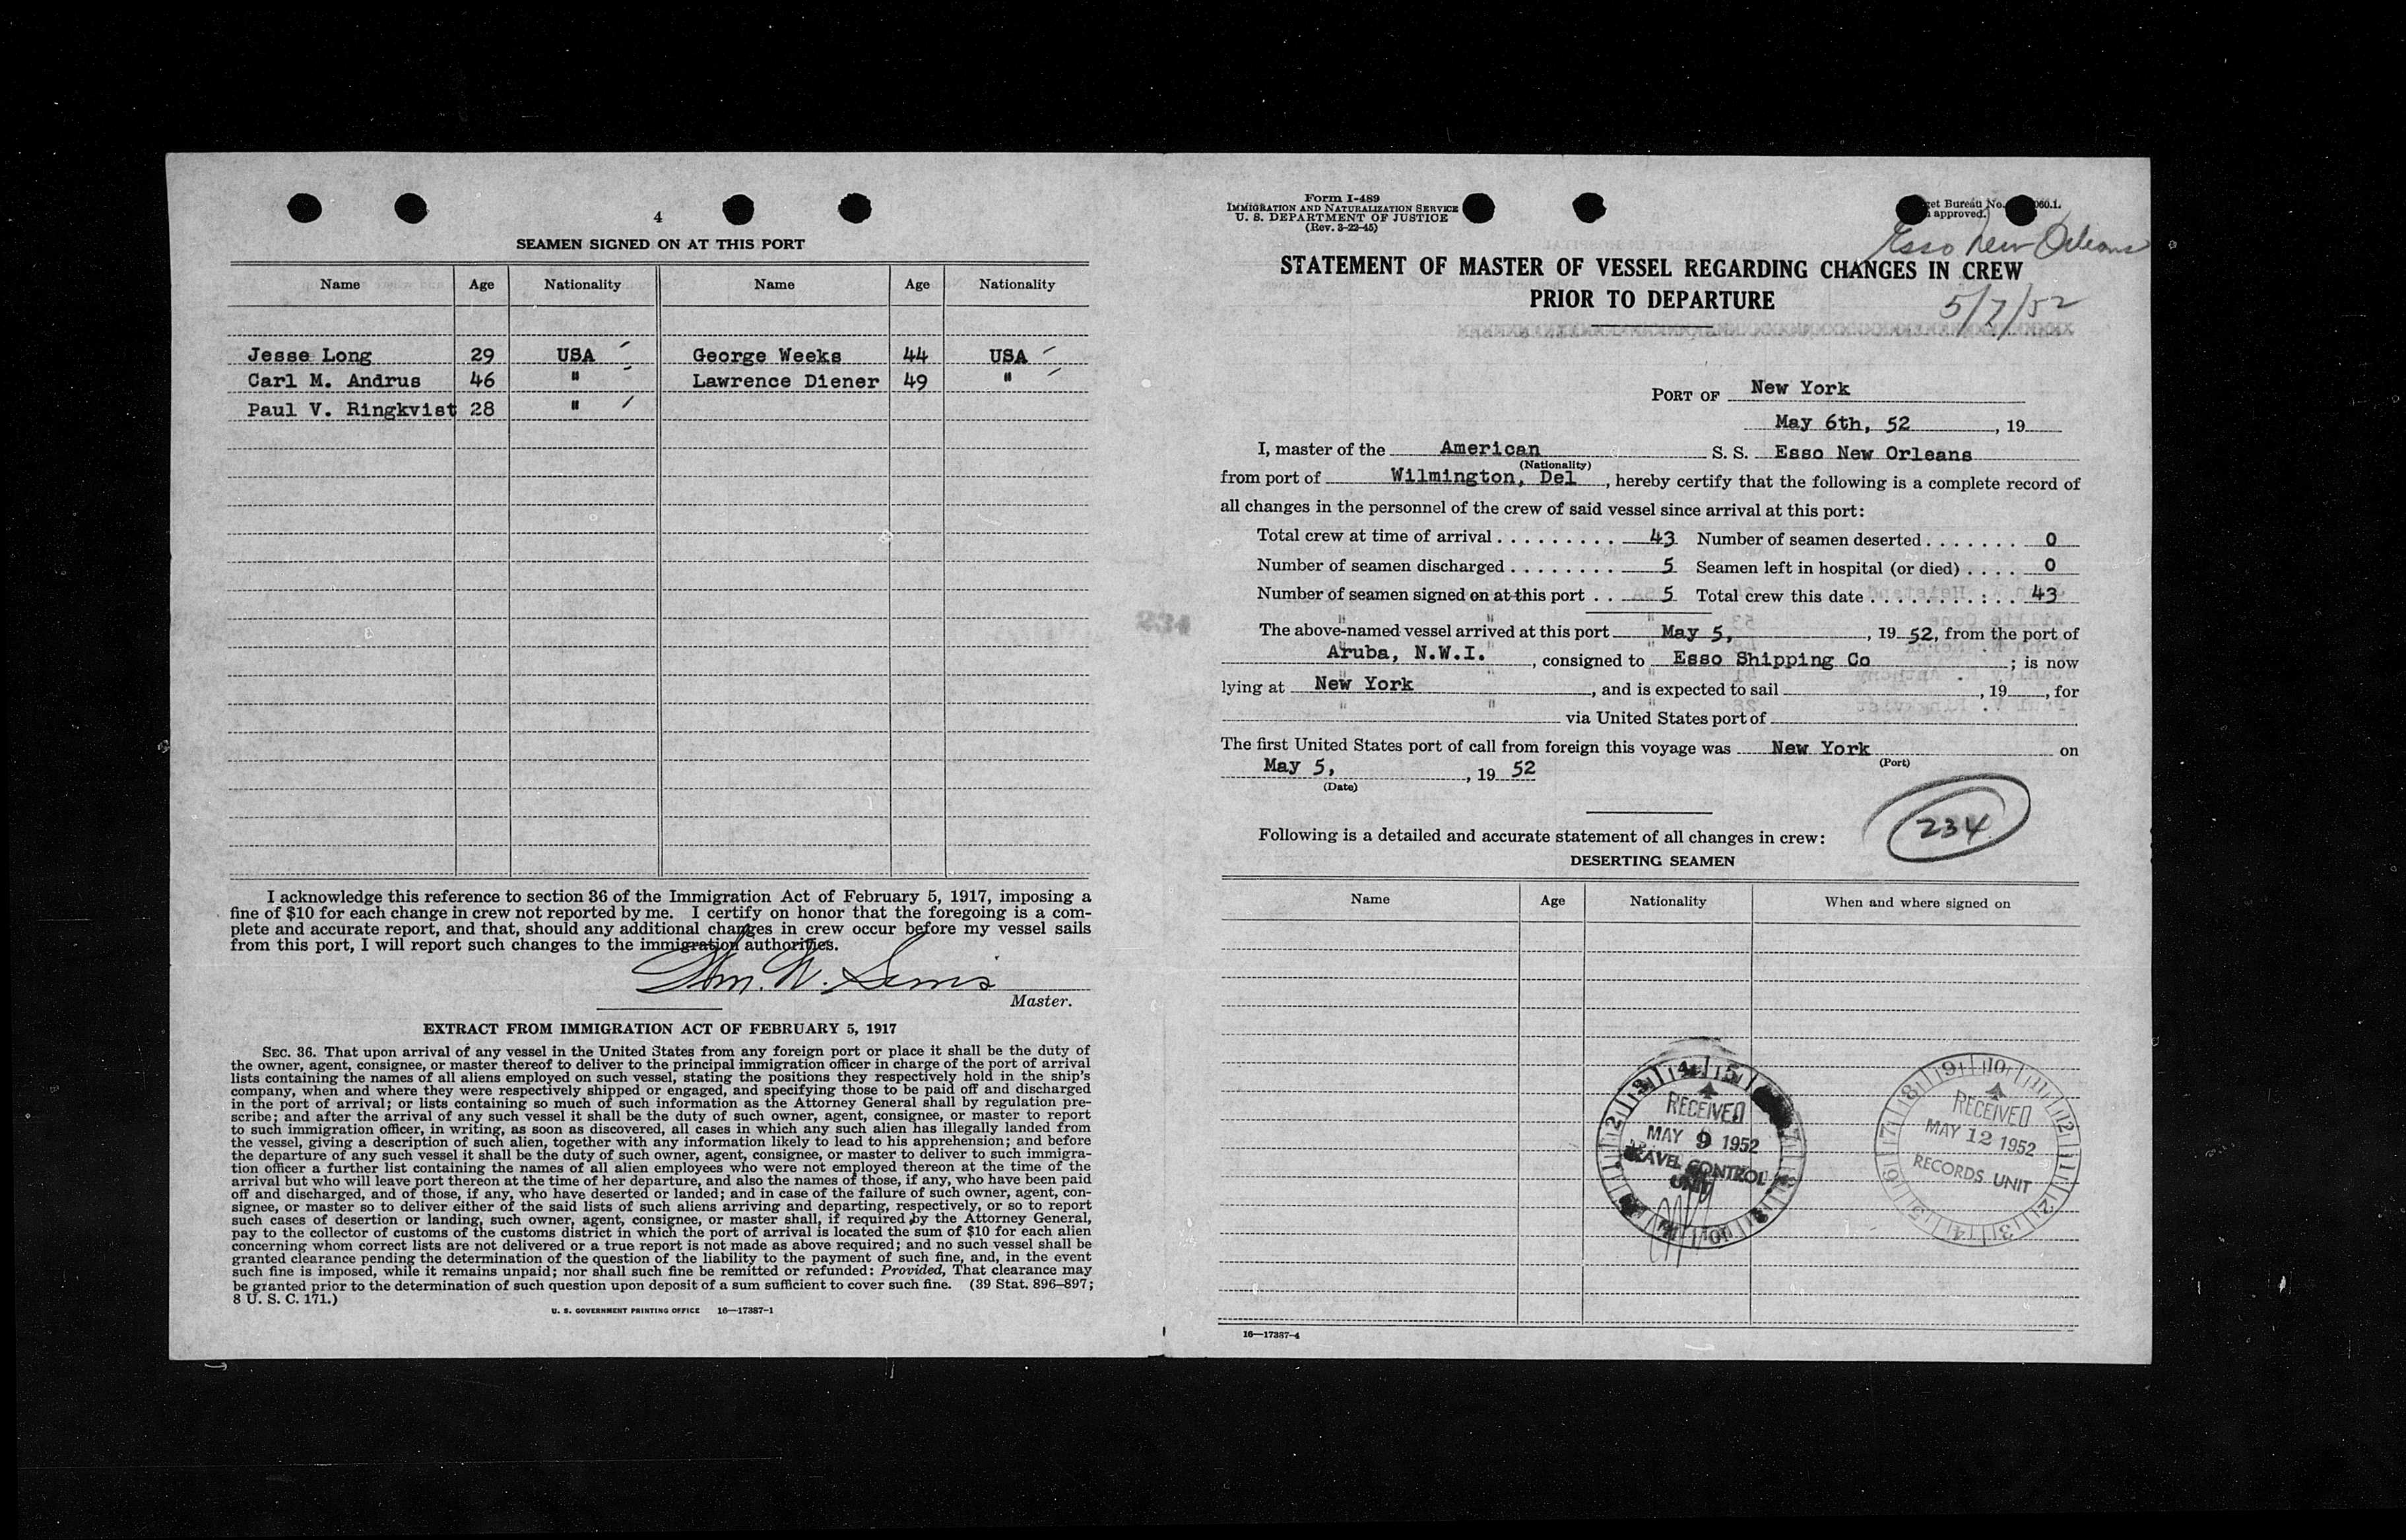 4
SEAMEN SIGNED ON AT THIS PORT
Name Age Nationality Name Age Nationality
Jesse Long 29 USA George Weeks 44 USA
Carl M. Andrus 46 " Lawrence Diener 49 "
Paul V. Ringkvist 28 "
I acknowledge this reference to section 36 of the Immigration Act of February 5, 1917, imposing a
fine of $10 for each change in crew not reported by me. I certify on honor that the foregoing is a com-
plete and accurate report, and that, should any additional changes in crew occur before my vessel sails
from this port, I will report such changes to the immigration authorities.
Master.
EXTRACT FROM IMMIGRATION ACT OF FEBRUARY 5, 1917
SEC. 36. That upon arrival of any vessel in the United States from any foreign port or place it shall be the duty of
the owner, agent, consignee, or master thereof to deliver to the principal immigration officer in charge of the port of arrival
lists containing the names of all aliens employed on such vessel, stating the positions they respectively hold in the ship's
company, when and where they were respectively shipped or engaged, and specifying those to be paid off and discharged
in the port of arrival; or lists containing so much of such information as the Attorney General shall by regulation pre-
scribe; and after the arrival of any such vessel it shall be the duty of such owner, agent, consignee, or master to report
to such immigration officer, in writing, as soon as discovered, all cases in which any such alien has illegally landed from
the vessel, giving a description of such alien, together with any information likely to lead to his apprehension; and before
the departure of any such vessel it shall be the duty of such owner, agent, consignee, or master to deliver to such immigra-
tion officer a further list containing the names of all alien employees who were not employed thereon at the time of the
arrival but who will leave port thereon at the time of her departure, and also the names of those, if any, who have been paid
off and discharged, and of those, if any, who have deserted or landed; and in case of the failure of such owner, agent, con-
signee, or master so to deliver either of the said lists of such aliens arriving and departing, respectively, or so to report
such cases of desertion or landing, such owner, agent, consignee, or master shall, if required by the Attorney General,
pay to the collector of customs of the customs district in which the port of arrival is located the sum of $10 for each alien
concerning whom correct lists are not delivered or a true report is not made as above required; and no such vessel shall be
granted clearance pending the determination of the question of the liability to the payment of such fine, and, in the event
such fine is imposed, while it remains unpaid; nor shall such fine be remitted or refunded: Provided, That clearance may
be granted prior to the determination of such question upon deposit of a sum sufficient to cover such fine. (39 Stat. 896-897;
8 U. S. C. 171.)
U. S. GOVERNMENT PRINTING OFFICE 16—17387-1
Form I-489
IMMIGRATION AND NATURALIZATION SERVICE
U. S. DEPARTMENT OF JUSTICE
(Rev. 3-22-45)
Bureau No. 060.1.
approved.
Esso New Orleans
STATEMENT OF MASTER OF VESSEL REGARDING CHANGES IN CREW
PRIOR TO DEPARTURE
5/7/52
PORT OF New York
May 6th, 52, 19
I, master of the American S. S. Esso New Orleans
(Nationality)
from port of Wilmington, Del, hereby certify that the following is a complete record of
all changes in the personnel of the crew of said vessel since arrival at this port:
Total crew at time of arrival . . . . . . . . . 43 Number of seamen deserted . . . . . . . 0
Number of seamen discharged . . . . . . . . 5 Seamen left in hospital (or died) . . . . 0
Number of seamen signed on at this port . . 5 Total crew this date . . . . . . . . : . . 43
The above-named vessel arrived at this port May 5, , 19 52, from the port of
Aruba, N.W.I. , consigned to Esso Shipping Co ; is now
lying at New York , and is expected to sail , 19 , for
via United States port of
The first United States port of call from foreign this voyage was New York on
(Port)
May 5, , 19 52
(Date)
234
Following is a detailed and accurate statement of all changes in crew:
DESERTING SEAMEN
Name Age Nationality When and where signed on
RECEIVED
MAY 9 1952
TRAVEL CONTROL
UNIT
RECEIVED
MAY 12 1952
RECORDS UNIT
16—17387-4